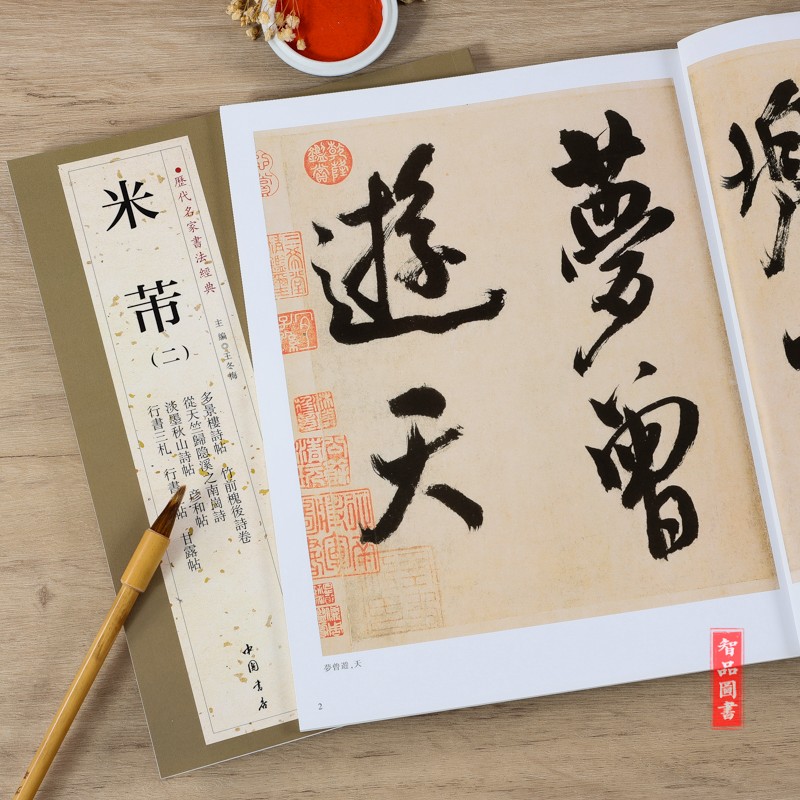 歷代名家書法經典
米芾
(二)
主編◎王冬梅
多景樓詩帖 竹前槐後詩卷
從天竺歸隐溪之南崗詩
淡墨秋山詩帖 彥和帖
行書三札 行書 帖 甘露帖
中國書店
夢曾
遊天
夢曾遊,天
2
智品圖書